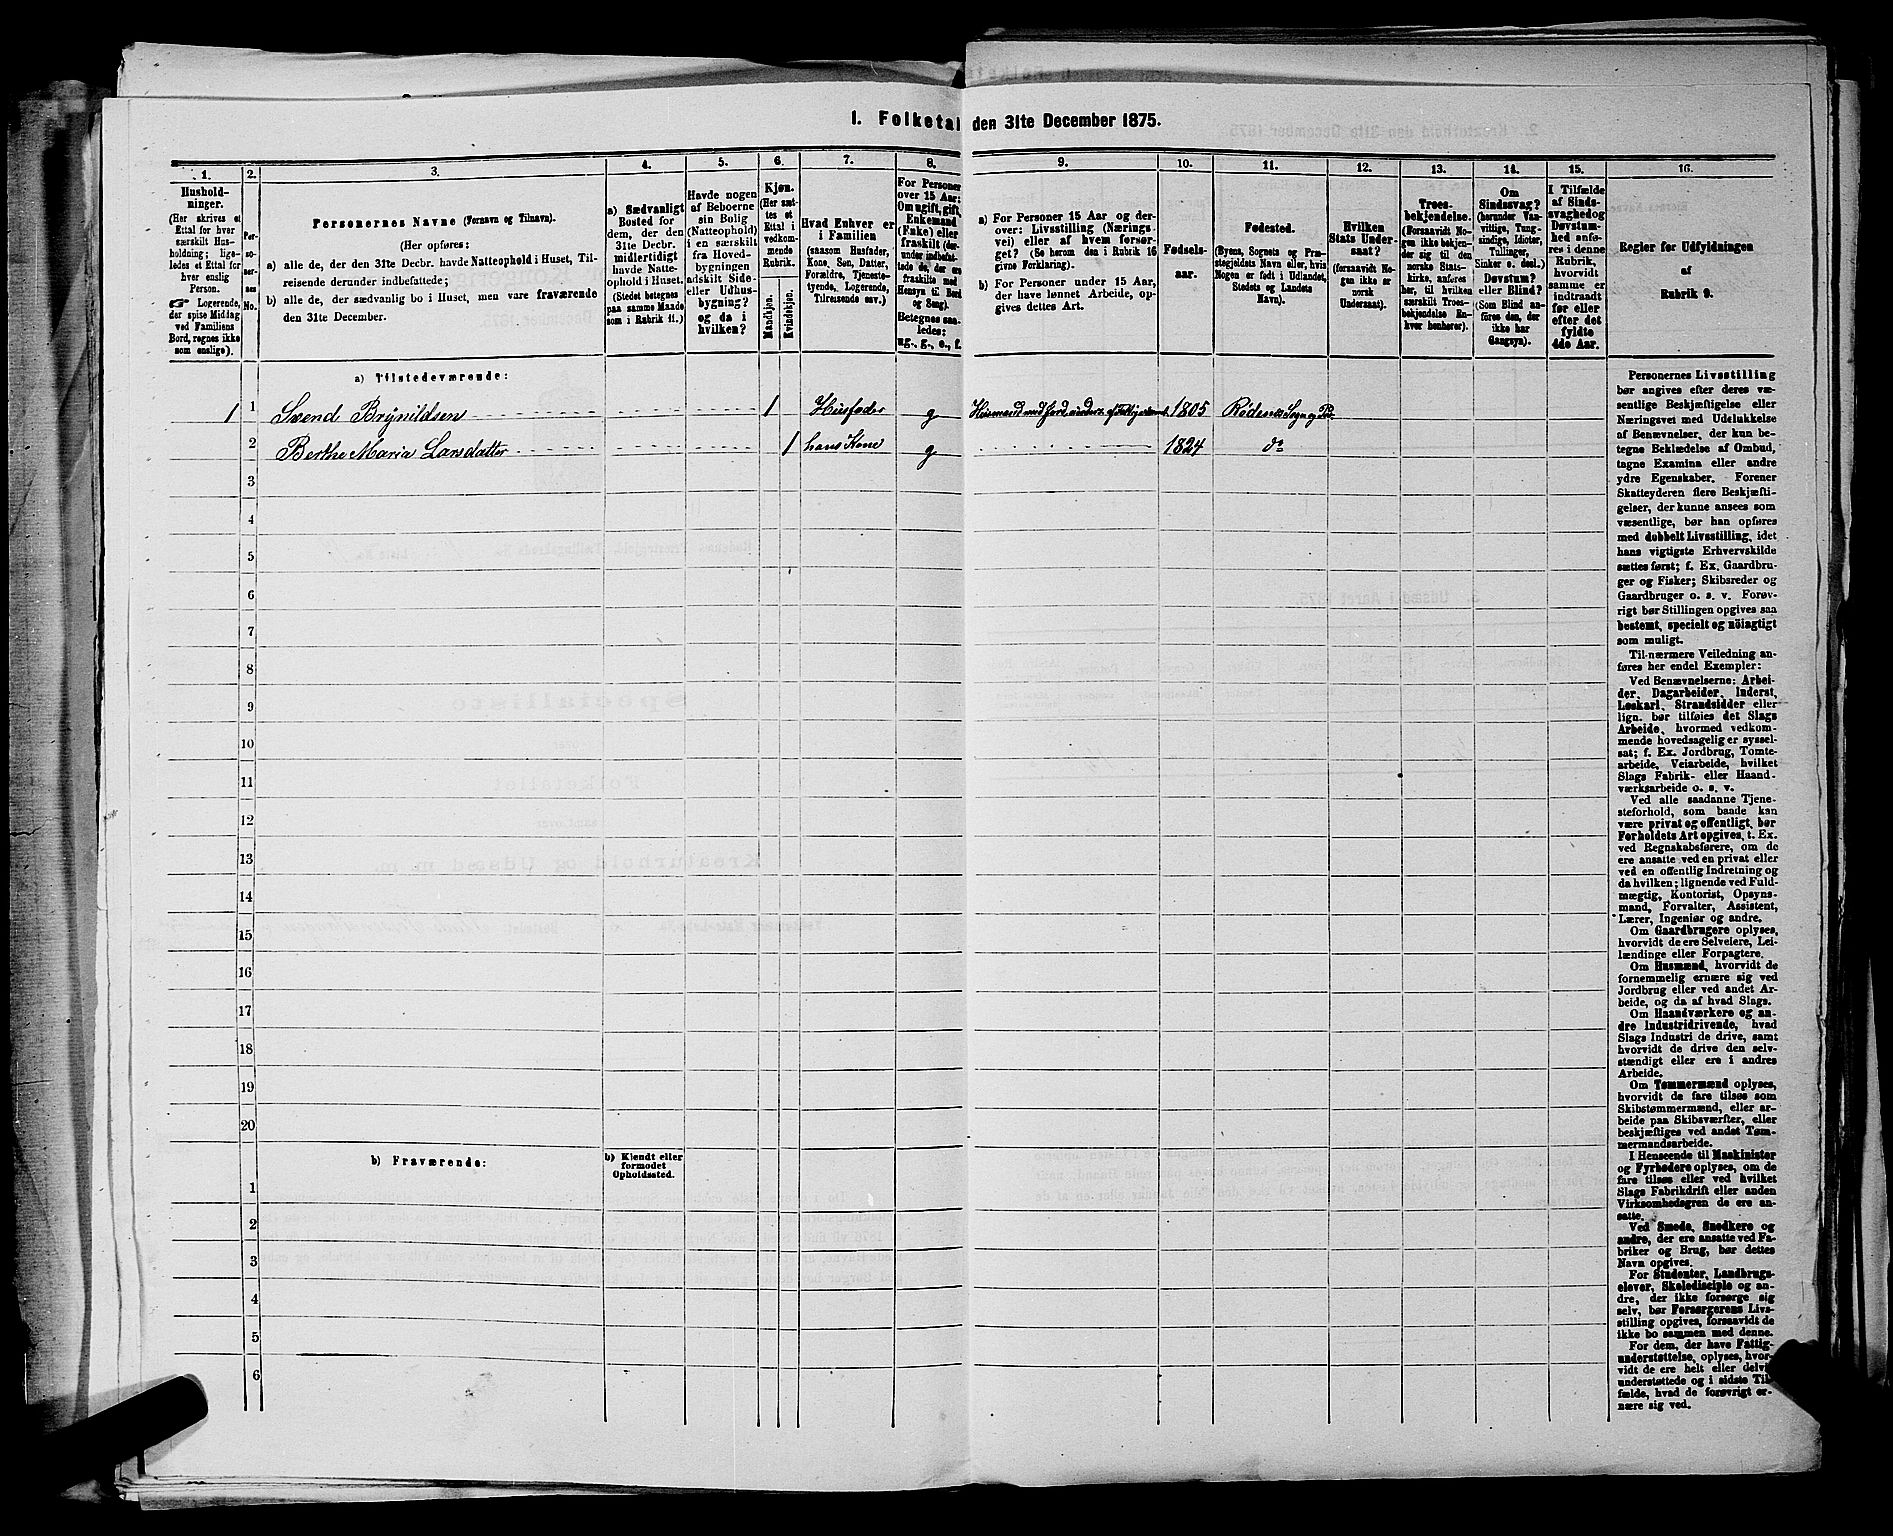 1. Folketal den 31te December 1875.
1.
Hushold-
ninger.
(Her skrives et
Ettal for hver
særskilt Hus-
holdning; lige-
ledes et Ettal for
hver enslig
Person.
☞ Logerende,
der spise Middag
ved Familiens
Bord, regnes ikke
som enslige).
2.
Per-
so-
ner-
nes
No.
3.
Personernes Navne (Fornavn og Tilnavn).
(Her opføres:
a) alle de, der den 31te Decbr. havde Natteophold i Huset, Til-
reisende derunder indbefattede;
b) alle de, der sædvanlig bo i Huset, men vare fraværende
den 31te December.
4.
a) Sædvanligt
Bosted for
dem, der den
31te Decbr.
midlertidigt
havde Natte-
ophold i Huset.
(Stedet betegnes
paa samme Maade
som i Rubrik 11.)
5.
Havde nogen
af Beboerne
sin Bolig
(Natteophold)
i en særskilt
fra Hoved-
bygningen
adskilt Side-
eller Udhus-
bygning?
og da i
hvilken?
6.
Kjøn.
(Her sæt-
tes et
Ettal i
vedkom-
mende
Rubrik.
Mandkjøn.
Kvindekjøn.
7.
Hvad Enhver er
i Familien
(saasom Husfader,
Kone, Søn, Datter,
Forældre, Tjeneste-
tyende, Logerende,
Tilreisende osv.)
8.
For Personer
over 15 Aar:
Om ugift, gift,
Enkemand
(Enke) eller
fraskilt (der-
under indbefat-
tede de, der ere
fraskilte med
Hensyn til Bord
og Seng).
Betegnes saa-
ledes:
ug., g., e., f.
9.
a) For Personer 15 Aar og der-
over: Livsstilling (Nærings-
vei) eller af hvem forsør-
get? (Se herom den i Rubrik 16
givne Forklaring).
b) For Personer under 15 Aar,
der have lønnet Arbeide, op-
gives dettes Art.
10.
Fødsels-
aar.
11.
Fødested.
(Byens, Sognets og Præ-
stegjeldets Navn eller, hvis
Nogen er født i Udlandet,
Stedets og Landets
Navn).
12.
Hvilken
Stats Under-
saat?
(forsaavidt No-
gen ikke er
norsk
Undersaat).
13.
Troes-
bekjendelse.
(Forsaavidt No-
gen ikke bekjen-
der sig til den
norske Stats-
kirke, anføres
her, til hvilken
særskilt Troes-
bekjendelse En-
hver henhører).
14.
Om
Sindssvag?
(herunder Van-
vittige, Tung-
sindige, Idioter,
Tullinger,
Sinker o. desl.)
Døvstum?
eller Blind?
(Som Blind an-
føres den, der
ikke har
Gangsyn).
15.
I Tilfælde
af Sinds-
svaghed og
Døvstum-
hed anfø-
res i denne
Rubrik,
hvorvidt
samme er
indtraadt
før eller
efter det
fyldte
4de Aar.
16.
Regler for Udfyldningen
af
Rubrik 9.
a) Tilstedeværende:
1 1 Svend Brynildsen 1 Husfader g Husmand med Jord 1805 Rødenes Sogn og Pd.
2 Berthe Maria Larsdatter 1 hans Kone g 1824 do
3
4
5
6
7
8
9
10
11
12
13
14
15
16
17
18
19
20
b) Fraværende:
b) Kjendt eller
formodet
Opholdssted.
1
2
3
4
5
6
Personernes Livsstilling
bør angives efter deres væ-
sentlige Beskjæftigelse eller
Næringsvei med Udelukkelse
af Benævnelser, der kun be-
tegne Beklædelse af Ombud,
tagne Examina eller andre
ydre Egenskaber. Forener
Skatteyderen flere Beskjæfti-
gelser, der kunne ansees som
væsentlige, bør han opføres
med dobbelt Livsstilling, idet
hans vigtigste Erhvervskilde
sættes først; f. Ex. Gaardbru-
ger og Fisker; Skibsreder og
Gaardbruger o. s. v. Forøv-
rigt bør Stillingen opgives saa
bestemt, specielt og nöiagtigt
som muligt.
Til nærmere Veiledning an-
føres her endel Exempler:
Ved Benævnelserne: Arbei-
der, Dagarbeider, Inderst,
Løskarl, Strandsidder eller
lign. bør tilføies det Slags
Arbeide, hvormed vedkom-
mende hovedsagelig er syssel-
sat; f. Ex. Jordbrug, Tomte-
arbeide, Veiarbeide, hvilket
Slags Fabrik- eller Haand-
værksarbeide o. s. v.
Ved alle saadanne Tjene-
steforhold, som baade kan
være privat og offentligt, bør
Forholdets Art opgives, t. Ex.
ved Regnskabsførere, om de
ere ansatte ved en privat eller
ved en offentlig Indretning og
da hvilken; lignende ved Fuld-
mægtig, Kontorist, Opsyns-
mand, Forvalter, Assistent,
Lærer, Ingeniør og andre.
Om Gaardbrugere oplyses,
hvorvidt de ere Selveiere, Lei-
lændinge eller Forpagtere.
Om Husmænd, hvorvidt de
fornemmelig ernære sig ved
Jordbrug eller ved andet Ar-
beide, og da af hvad Slags.
Om Haandværkere og an-
dre Industridrivende, hvad
Slags Industri de drive, samt
hvorvidt de drive den selv-
stændigt eller ere i andres
Arbeide.
Om Tømmermænd oplyses,
hvorvidt de fare tilsøs som
Skibstømmermænd, eller ar-
beide paa Skibsværfter, eller
beskjæftiges ved andet Tøm-
mermandsarbeide.
I Henseende til Maskinister
og Fyrbødere oplyses, om de
fare tilsøs eller ved hvilket
Slags Fabrikdrift eller anden
Virksomhedsgren de ere an-
satte.
Ved Smede, Snedkere og
andre, der ere ansatte ved Fa-
briker og Brug, bør dettes
Navn opgives.
For Studenter, Landbrugs-
elever, Skoledisciple og an-
dre, der ikke forsørge sig
selv, bør Forsørgerens Livs-
stilling opgives, forsaavidt de
ikke bo sammen med denne.
For dem, der have Fattig-
understøttelse, oplyses, hvor-
vidt de ere helt eller delvis
understøttede og i sidste Til-
fælde, hvad de forøvrigt er-
nære sig ved.